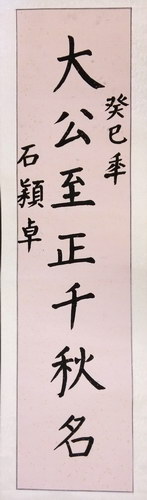 癸巳年
大公至正千秋名
石穎卓